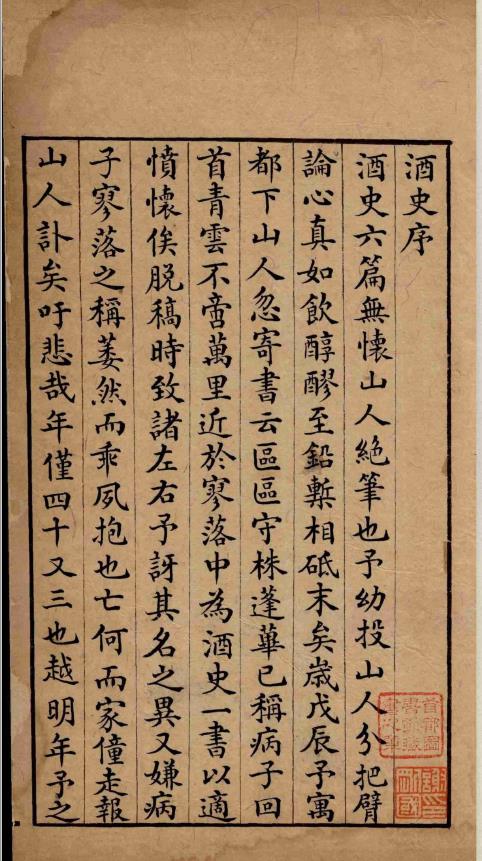 酒史序
酒史六篇無懷山人絶筆也予幼投山人分把臂
論心真如飲醇醪至鉛槧相砥末矣歲戊辰予寓
都下山人忽寄書云區區守株蓬蓽已稱病子回
首青雲不啻萬里近於寥落中為酒史一書以適
憤懷俟脫稿時致諸左右予訝其名之異又嫌病
子寥落之稱萎然而乖夙抱也亡何而家僮走報
山人訃矣吁悲哉年僅四十又三也越明年予之